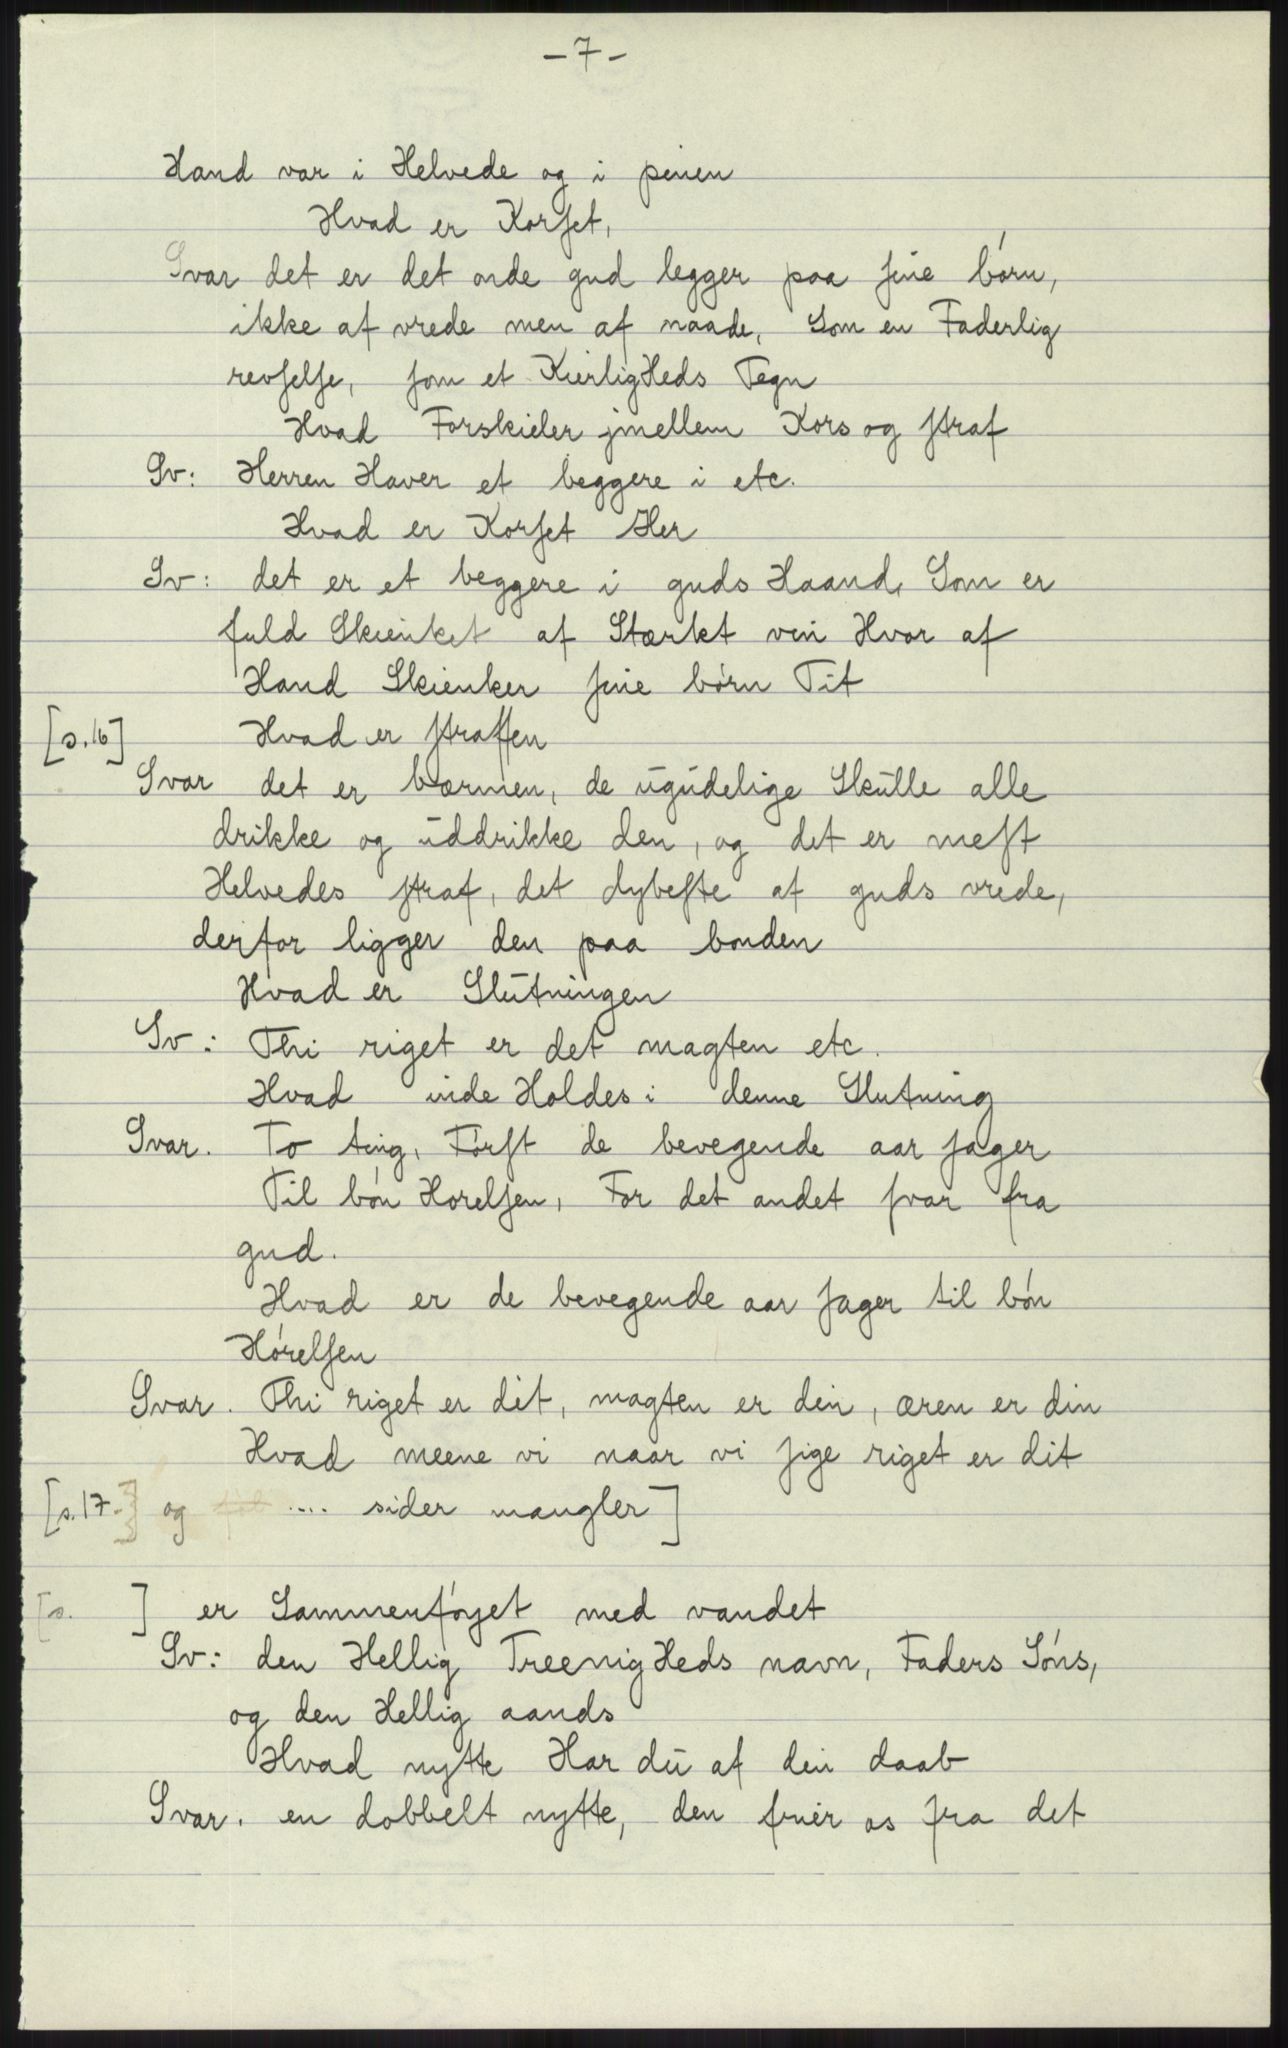 - 7 -
Hand var i Helvede og i pinen
Hvad er Korſet,
Svar det er det onde gud legger paa ſine børn,
ikke af vrede men af naade, Som en Faderlig
revſelſe, ſom et KierligHeds Tegn
Hvad Forskieler jmellem Kors og ſtraf
Sv: Herren Haver et beggere i etc.
Hvad er Korſet Her
Sv: det er et beggere i guds Haand, Som er
fuld Skienket af Stærkt vin Hvor af
Hand Skienker ſine børn Tit
[s.16] Hvad er ſtraffen
Svar det er bærmen, de ugudelige Skulle alle
drikke og uddrikke den, og det er meſt
Helvedes ſtraf, det dybeſte af guds vrede,
derfor ligger den paa bonden
Hvad er Slutningen
Sv: Thi riget er det magten etc.
Hvad inde Holdes i denne Slutning
Svar. To ting, Førſt de bevegende aar ſager
Til bøn Horelſen, For det andet ſvar fra
gud.
Hvad er de bevegende aar ſager til bøn
Hørelſen
Svar. Thi riget er dit, magten er din, æren er din
Hvad meene vi naar vi ſige riget er dit
[s.17-] og .... sider mangler]
[s. ] er Sammenføyet med vandet
Sv: den Hellig TreenigHeds navn, Faders Søns,
og den Hellig aands
Hvad nytte Har du af din daab
Svar. en dobbelt nytte, den friér os fra det